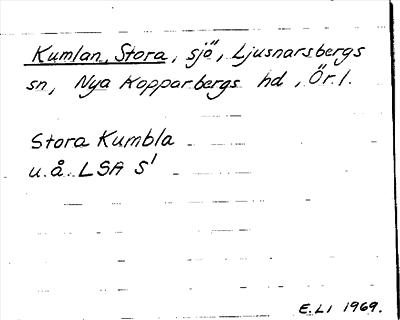 Kumlan, Stora, sjö, Ljusnarsbergs
sn, Nya Kopparbergs hd, Ör. l.
Stora Kumbla
u.å. LSA S1
E.Li 1969.